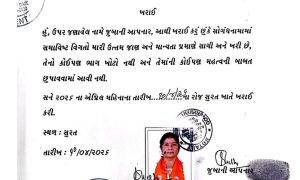 ખરાઈ
હું, ઉપર જણાવેલ નામે જુબાની આપનાર, આથી ખરાઈ કરું છું કે સોગંદનામામાં
સમાવિષ્ટ વિગતો મારી ઉત્તમ જાણ અને માન્યતા પ્રમાણે સાચી અને ખરી છે,
તેનો કોઈપણ ભાગ ખોટો નથી અને તેમાંની કોઈપણ મહત્વની બાબત
છુપાવવામાં આવી નથી.
સને ૨૦૨૬ ના એપ્રિલ મહિનાના તારીખ ના રોજ સુરત ખાતે ખરાઈ
કરી.
સ્થળ : સુરત
તારીખ : /૦૪/૨૦૨૬
જુબાની આપનાર